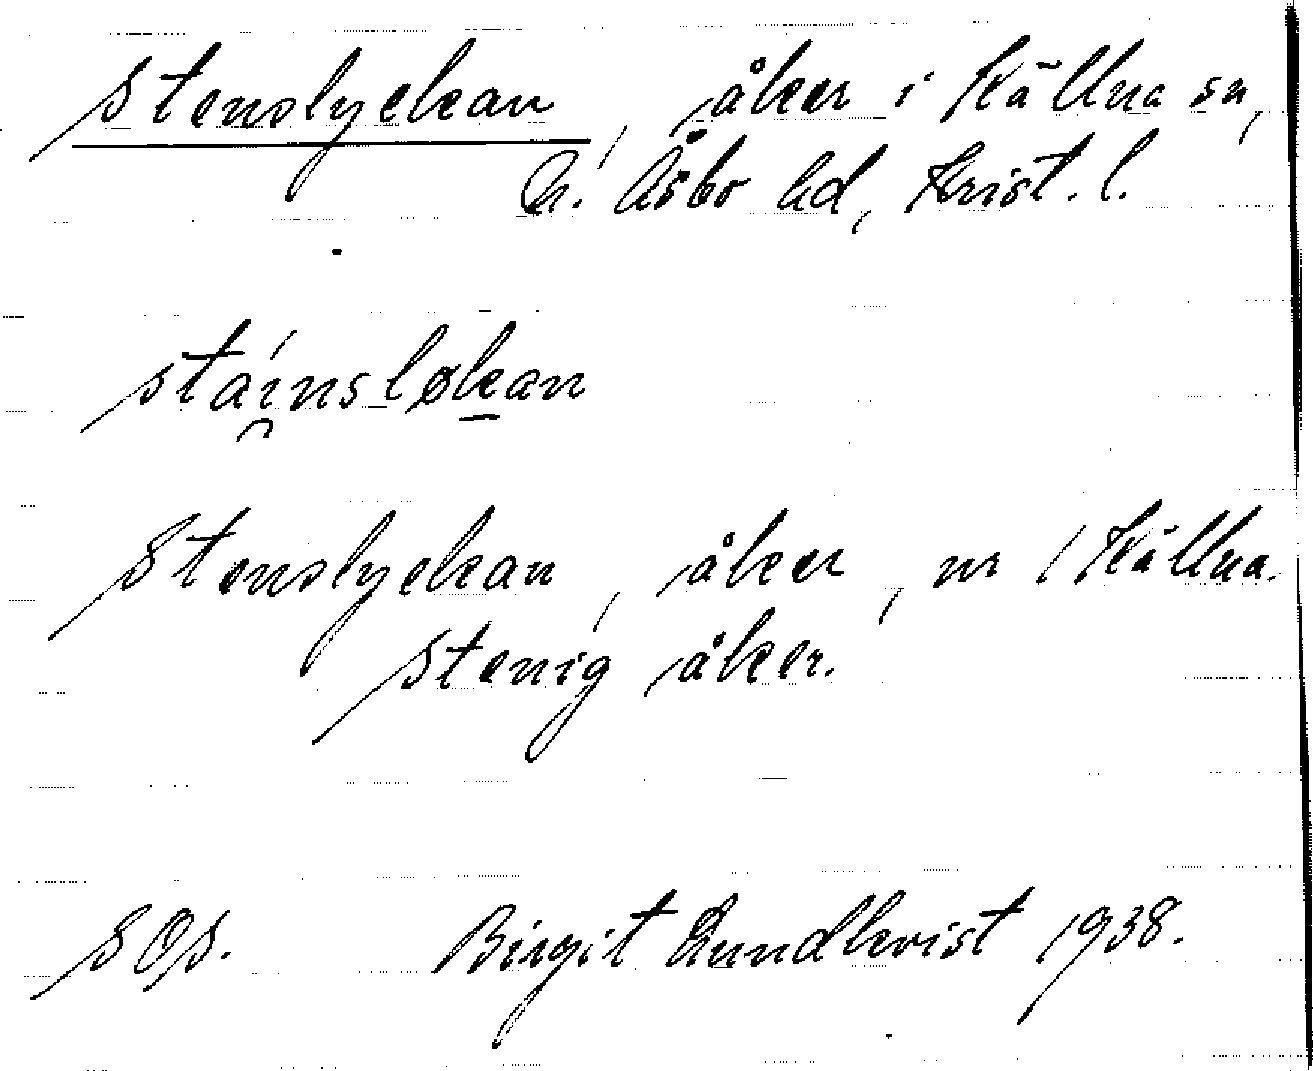 Stenslyckan, åker i Källna sn,
N. Åsbo hd, Krist. l.
stáinsløkan
Stenslyckan, åker, nr 1 Källna.
Stenig åker.
SOS. Birgit Lundkvist 1938.